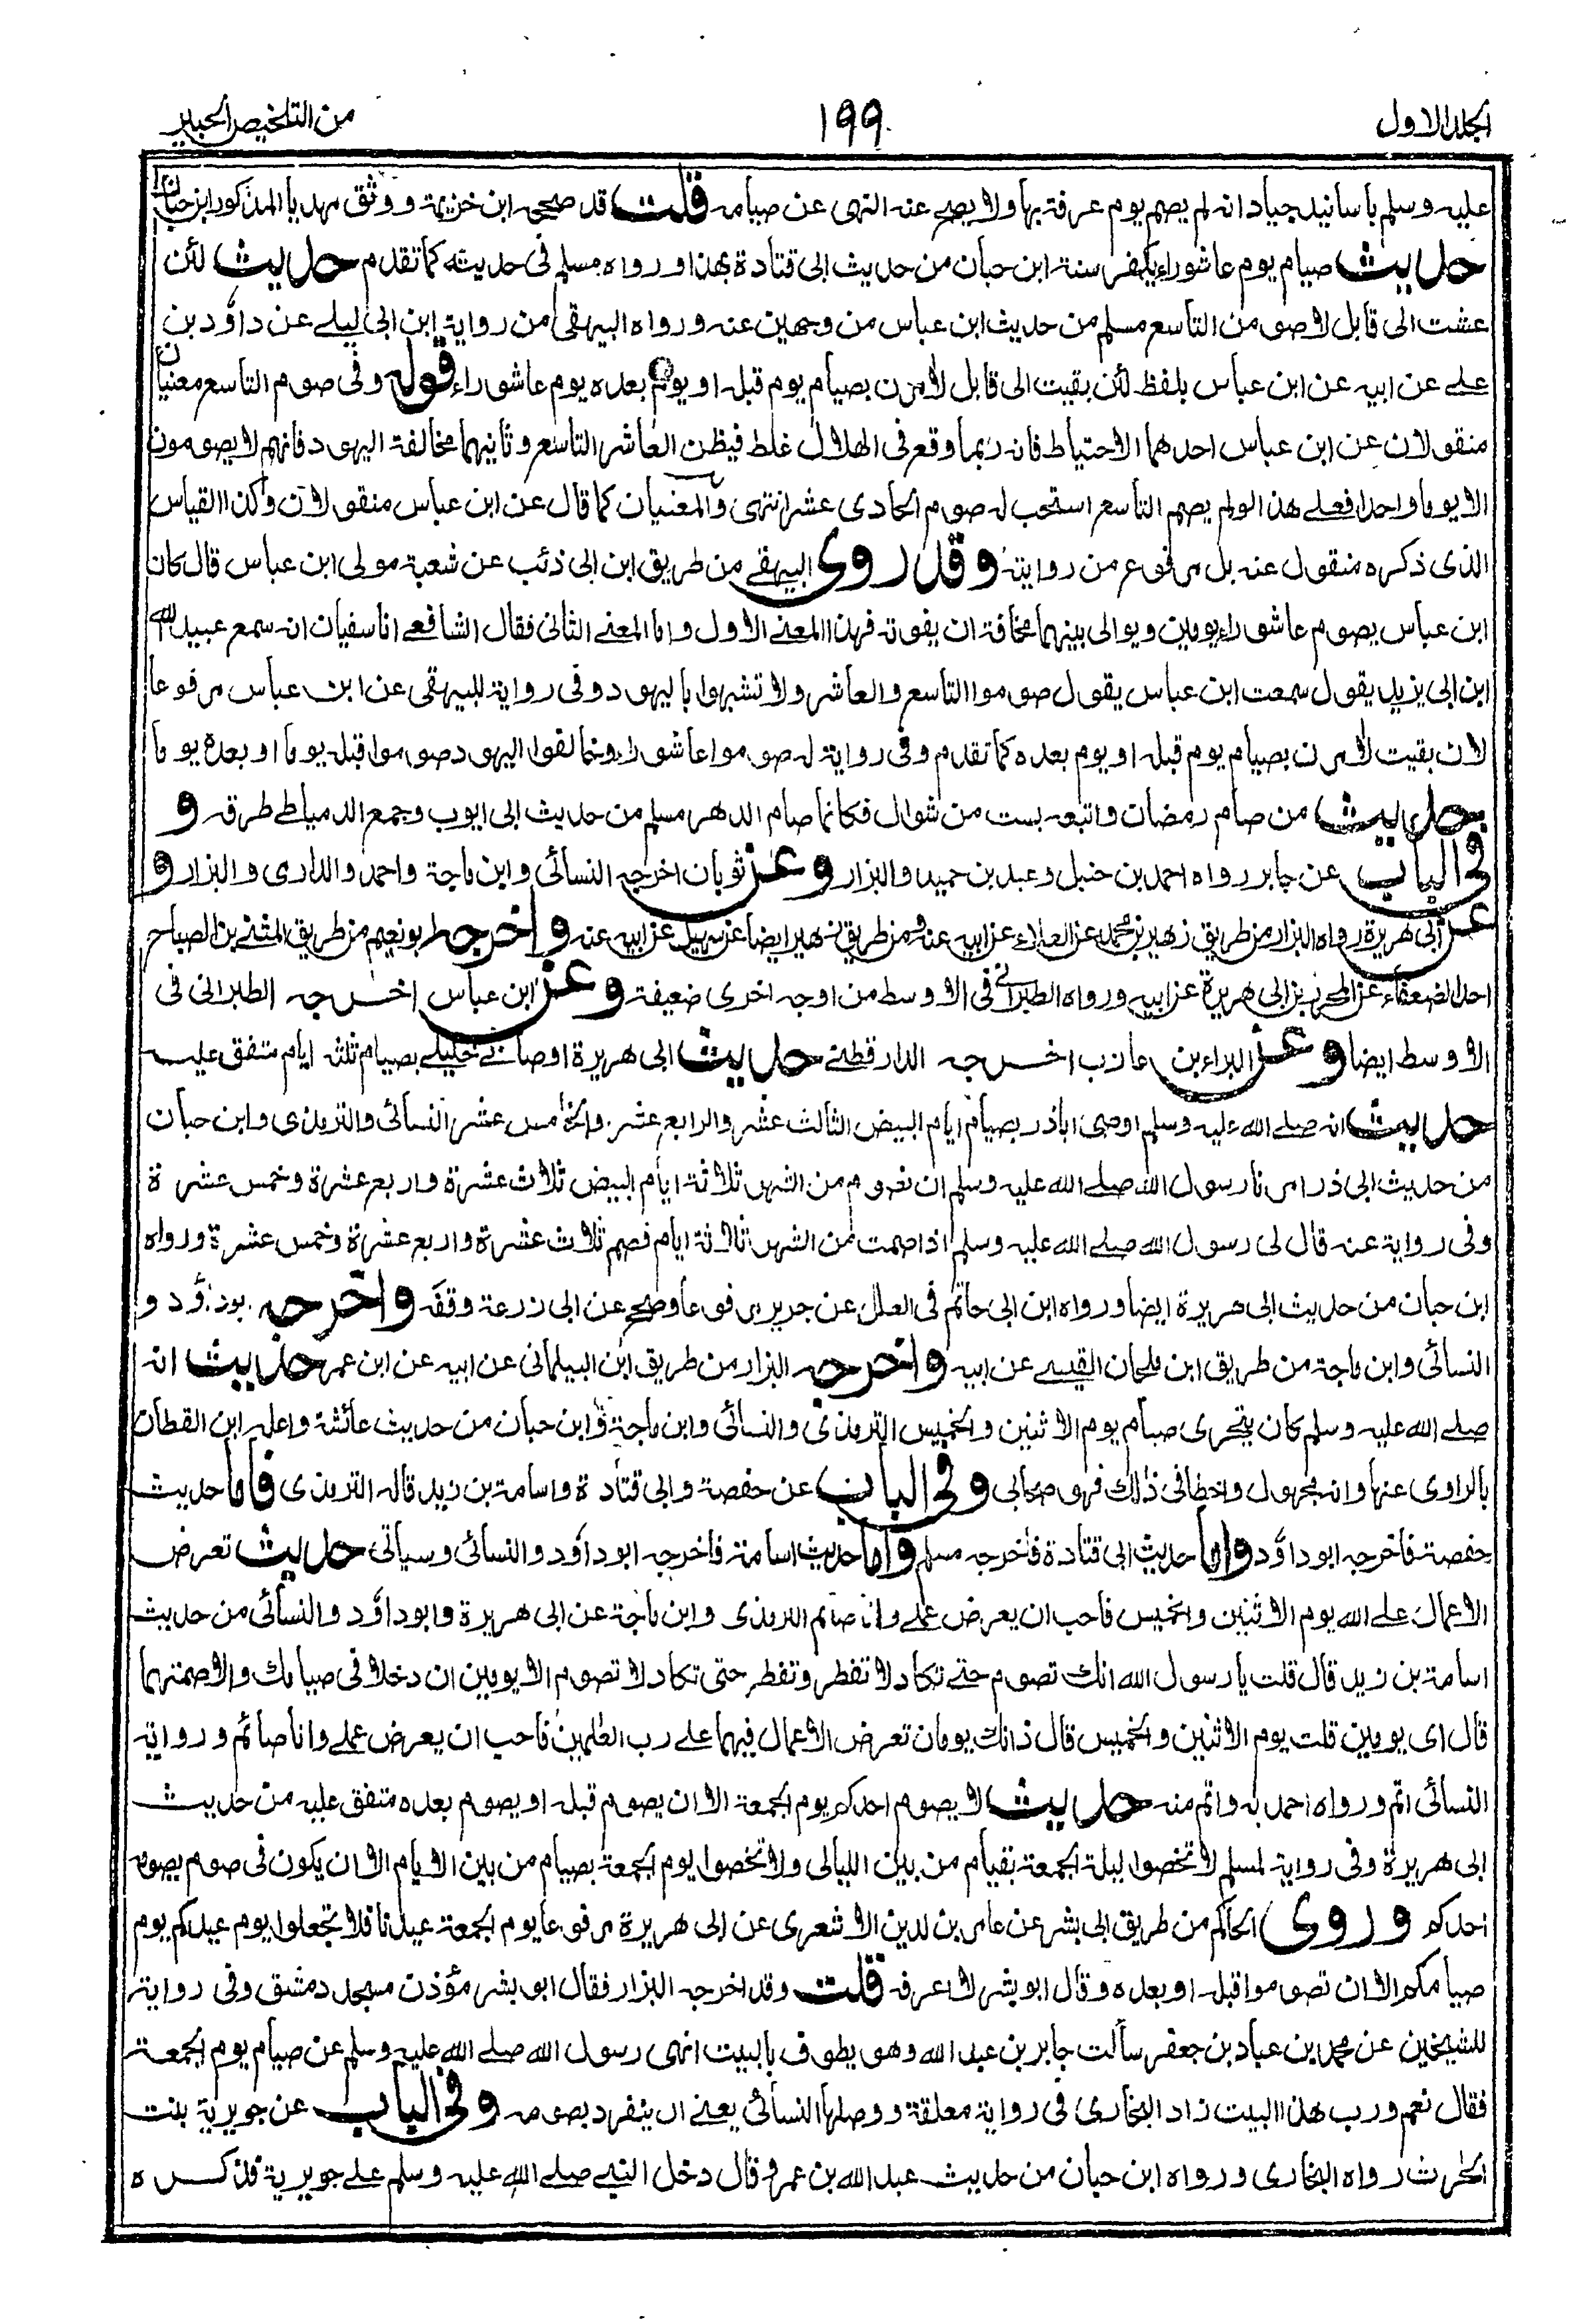 الجلد الاول
١٩٩
من التلخيص الحبير
عليه وسلم بأسانيد جياد انه لم يصم يوم عرفة بها ولا يصح عنه النهى عن صيامه قلت قد صححه ابن خزيمة ووثق مهديا المذكور ابن حبان
حديث صيام يوم عاشوراء يكفر سنة ابن حبان من حديث ابى قتادة بهذا ورواه مسلم فى حديثه كما تقدم حديث لئن
عشت الى قابل لاصومن التاسع مسلم من حديث ابن عباس من وجهين عنه ورواه البيهقى من رواية ابن ابى ليلے عن داؤد بن
علے عن ابيه عن ابن عباس بلفظ لئن بقيت الى قابل لأمرن بصيام يوم قبله او يوم بعده يوم عاشوراء قوله وفى صوم التاسع معنيان
منقولان عن ابن عباس احدهما الاحتياط فانه ربما وقع فى الهلال غلط فيظن العاشر التاسع وثانيهما مخالفة اليهود فانهم لا يصومون
الا يوما واحدا فعلے هذا لو لم يصم التاسع استحب له صوم الحادى عشر انتهى والمعنيان كما قال عن ابن عباس منقولان وكذا القياس
الذى ذكره منقول عنه بل مرفوع من روايته وقد روى البيهقے من طريق ابن ابى ذئب عن شعبة مولى ابن عباس قال كان
ابن عباس يصوم عاشوراء يومين ويوالى بينهما مخافة ان يفوته فهذا المعنے الاول واما المعنے الثانى فقال الشافعے انا سفيان انه سمع عبيد الله
ابن ابى يزيد يقول سمعت ابن عباس يقول صوموا التاسع والعاشر ولا تشبهوا باليهود وفى رواية للبيهقى عن ابن عباس مرفوعا
لان بقيت لأمرن بصيام يوم قبله او يوم بعده كما تقدم وفى رواية له صوموا عاشوراء وخالفوا اليهود صوموا قبله يوما او بعده يوما
حديث من صام رمضان واتبعه بست من شوال فكانما صام الدهر مسلم من حديث ابى ايوب وجمع الدمياطے طرقه و
فى الباب عن جابر رواه احمد بن حنبل وعبد بن حميد والبزار وعن ثوبان اخرجه النسائى وابن ماجة واحمد والدارى والبزار و
عن ابى هريرة رواه البزار من طريق زهير بن محمد عن العلاء عن ابيه عنه ومن طريق زهير ايضا عن سهيل عن ابيه عنه واخرجه ابو نعيم من طريق المثنے بن الصباح
احد الضعفاء عن المحرر بن ابى هريرة عن ابيه ورواه الطبرانے فى الاوسط من اوجه اخرى ضعيفة وعن ابن عباس اخرجه الطبرانى فى
الاوسط ايضا وعن البراء بن عازب اخرجه الدارقطنے حديث ابى هريرة اوصانے خليلے بصيام ثلثة ايام متفق عليه
حديث انه صلے الله عليه وسلم اوصى اباذر بصيام ايام البيض الثالث عشر والرابع عشر والخامس عشر النسائى والترمذى وابن حبان
من حديث ابى ذر امرنا رسول الله صلے الله عليه وسلم ان نصوم من الشهر ثلاثة ايام البيض ثلاث عشرة واربع عشرة وخمس عشرة
وفى رواية عنه قال لى رسول الله صلے الله عليه وسلم اذا صمت من الشهر ثلاثة ايام فصم ثلاث عشرة واربع عشرة وخمس عشرة ورواه
ابن حبان من حديث ابى هريرة ايضا ورواه ابن ابى حاتم فى العلل عن جرير مرفوعا وصحح عن ابى زرعة وقفه واخرجه ابوداؤد و
النسائى وابن ماجة من طريق ابن ملحان القيسے عن ابيه واخرجه البزار من طريق ابن البيلمانى عن ابيه عن ابن عمر حديث انه
صلے الله عليه وسلم كان يتحرى صيام يوم الاثنين والخميس الترمذى والنسائى وابن ماجة وابن حبان من حديث عائشة واعله ابن القطان
بالراوى عنها وانه مجهول واخطأ فى ذلك فهو صحابى وفى الباب عن حفصة وابى قتادة واسامة بن زيد قاله الترمذى فاما حديث
حفصة فاخرجه ابوداؤد واما حديث ابى قتادة فاخرجه مسلم واما حديث اسامة فاخرجه ابوداؤد والنسائى وسياتى حديث تعرض
الاعمال علے الله يوم الاثنين والخميس فاحب ان يعرض عملے وانا صائم الترمذى وابن ماجة عن ابى هريرة وابوداؤد والنسائى من حديث
اسامة بن زيد قال قلت يا رسول الله انك تصوم حتے تكاد لا تفطر وتفطر حتى تكاد لا تصوم الا يومين ان دخلا فى صيامك والا صمتهما
قال اى يومين قلت يوم الاثنين والخميس قال ذانك يومان تعرض الاعمال فيهما علے رب العلمين فاحب ان يعرض عملے وانا صائم ورواية
النسائى اتم ورواه احمد به واتم منه حديث لا يصوم احدكم يوم الجمعة الا ان يصوم قبله او يصوم بعده متفق عليه من حديث
ابى هريرة وفى رواية لمسلم لا تخصوا ليلة الجمعة بقيام من بين الليالى ولا تخصوا يوم الجمعة بصيام من بين الايام الا ان يكون فى صوم يصومه
احدكم وروى الحاكم من طريق ابى بشر عن عامر بن لدين الاشعرى عن ابى هريرة مرفوعا يوم الجمعة عيدنا فلا تجعلوا يوم عيدكم يوم
صيامكم الا ان تصوموا قبله او بعده وقال ابو بشر لا اعرفه قلت وقد اخرجه البزار فقال ابو بشر مؤذن مسجد دمشق وفى رواية
للشيخين عن محمد بن عباد بن جعفر سألت جابر بن عبد الله وهو يطوف بالبيت انهى رسول الله صلے الله عليه وسلم عن صيام يوم الجمعة
فقال نعم ورب هذا البيت زاد البخارى فى رواية معلقة ووصلها النسائى يعنے ان ينفرد بصومه وفى الباب عن جويرية بنت
الحرث رواه البخارى ورواه ابن حبان من حديث عبد الله بن عمرو قال دخل النبے صلے الله عليه وسلم علے جويرية فذكره